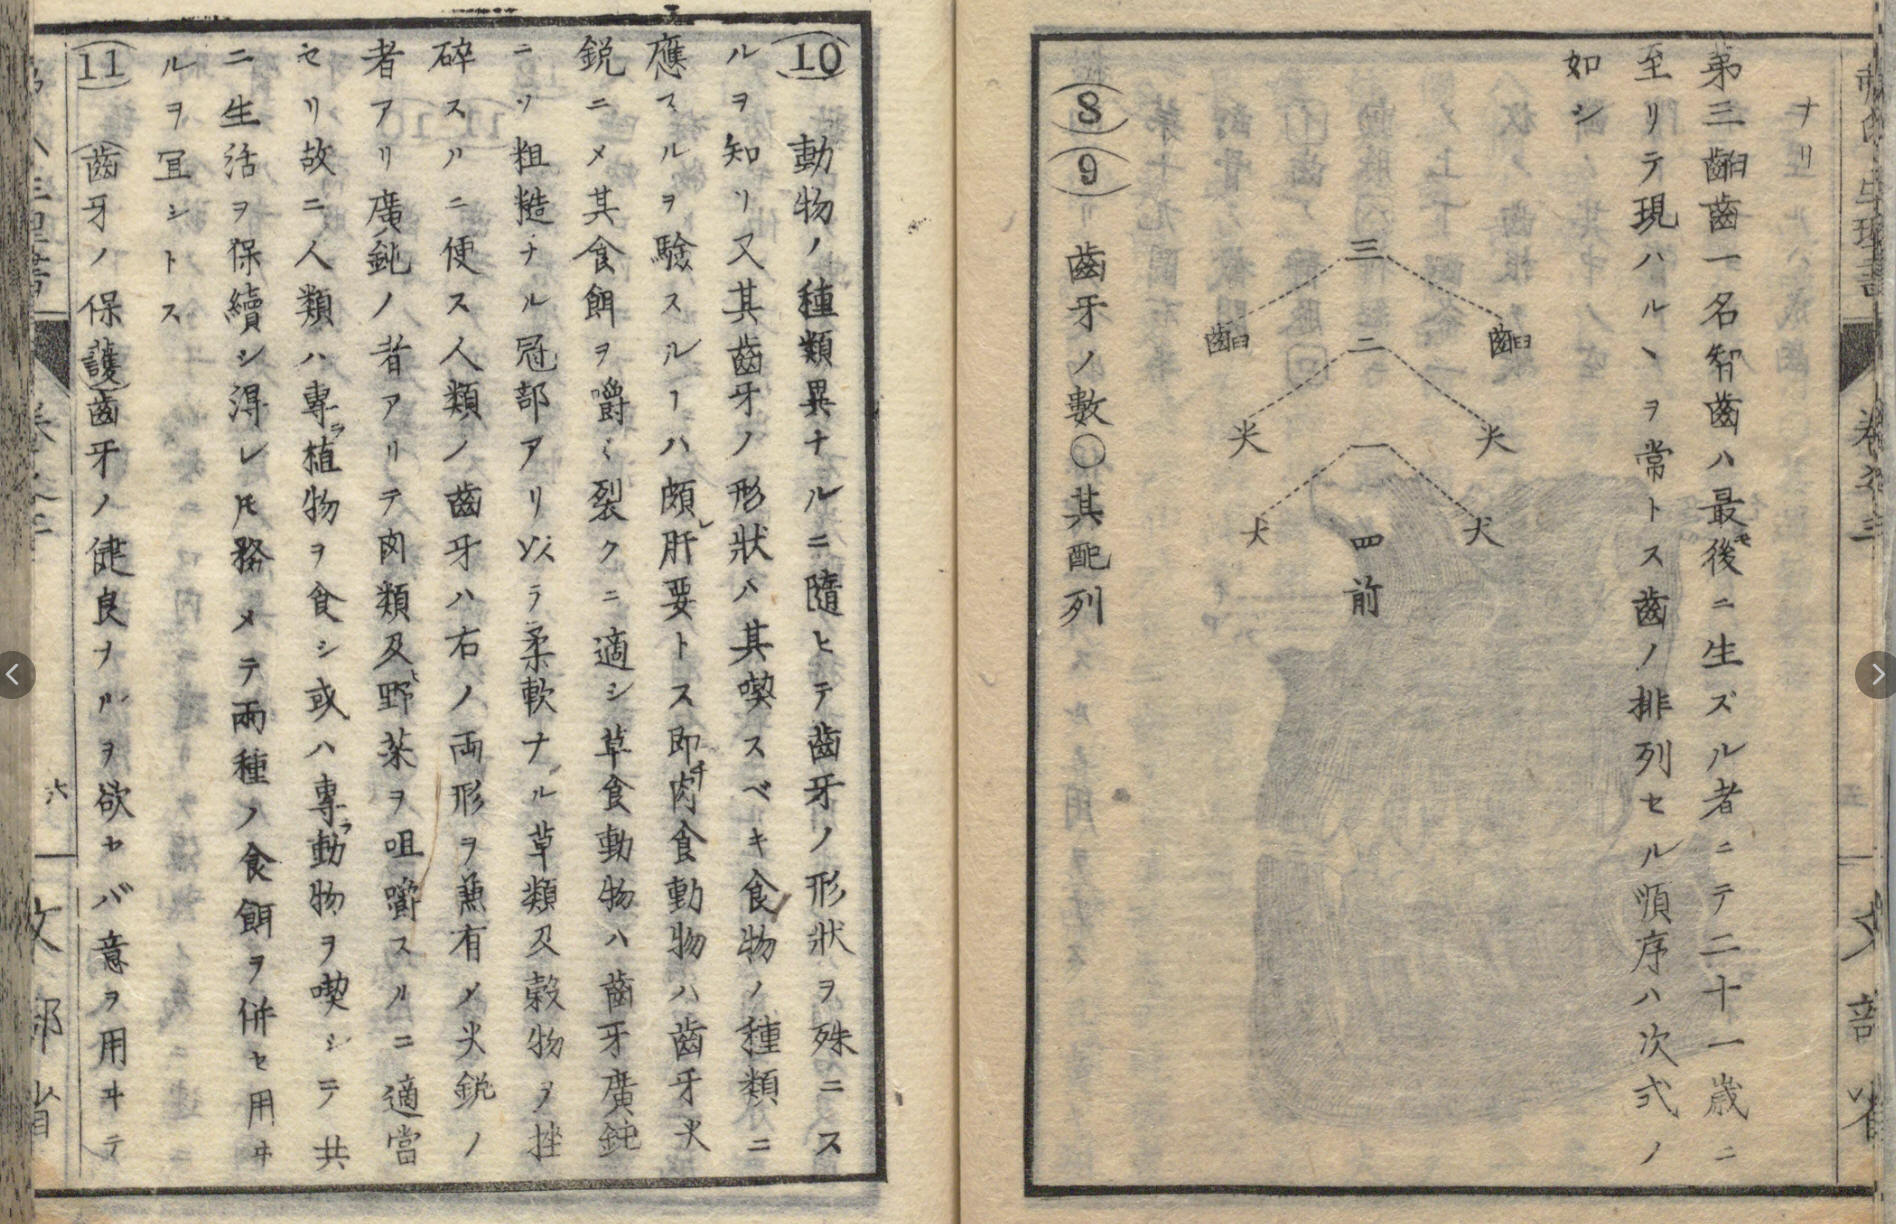 ナリ
第三齨齒一名智齒ハ最後ニ生ズル者ニテ二十一歲ニ
至リテ現ハルヽヲ常トス齒ノ排列セル順序ハ次式ノ
如シ
三
齨 齨
二
尖 尖
一
犬 犬
四
前
(8)(9) 齒牙ノ數〇其配列
卷之三
文部省
(10) 動物ノ種類異ナルニ隨ヒテ齒牙ノ形狀ヲ殊ニス
ルヲ知リ又其齒牙ノ形狀ハ其喫スベキ食物ノ種類ニ
應スルヲ驗スルーハ頗レ肝要トス即チ肉食動物ハ齒牙尖
鋭ニメ其食餌ヲ嚼ミ裂クニ適シ草食動物ハ齒牙廣鈍
ニソ粗糙ナル冠部アリ以テ柔軟ナル草類及穀物ヲ挫
碎スルニ便ス人類ノ齒牙ハ右ノ両形ヲ兼有メ尖鋭ノ
者アリ廣鈍ノ者アリテ肉類及ヒ野菜ヲ咀嚼スルニ適當
セリ故ニ人類ハ專ラ植物ヲ食シ或ハ專ラ動物ヲ喫シテ共
ニ生活ヲ保續シ得レ𪜈務メテ兩種ノ食餌ヲ併セ用ヰ
ルヲ宜シトス
(11) (齒牙ノ保護)齒牙ノ健良ナルヲ欲セバ意ヲ用ヰテ
六